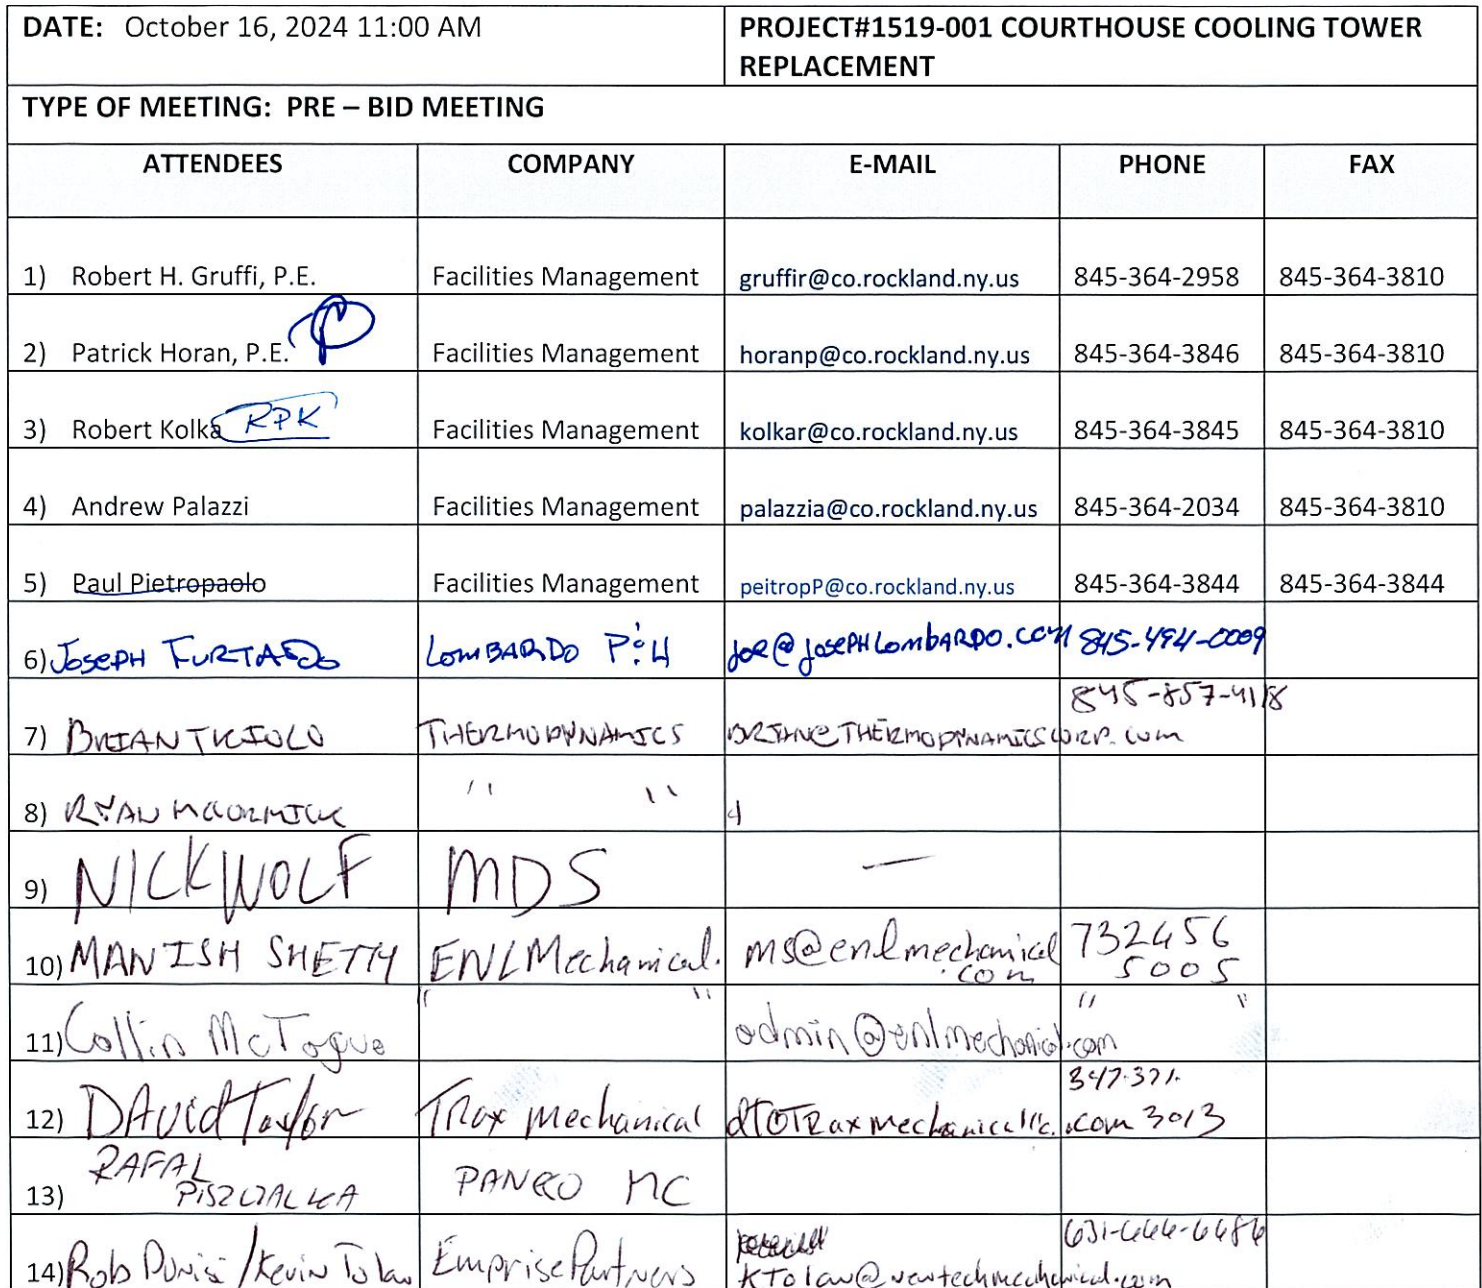 DATE: October 16, 2024 11:00 AM
PROJECT#1519-001 COURTHOUSE COOLING TOWER
REPLACEMENT
TYPE OF MEETING: PRE – BID MEETING
ATTENDEES COMPANY E-MAIL PHONE FAX
1) Robert H. Gruffi, P.E. Facilities Management gruffir@co.rockland.ny.us 845-364-2958 845-364-3810
2) Patrick Horan, P.E. Facilities Management horanp@co.rockland.ny.us 845-364-3846 845-364-3810
3) Robert Kolka RPK Facilities Management kolkar@co.rockland.ny.us 845-364-3845 845-364-3810
4) Andrew Palazzi Facilities Management palazzia@co.rockland.ny.us 845-364-2034 845-364-3810
5) Paul Pietropaolo Facilities Management peitropP@co.rockland.ny.us 845-364-3844 845-364-3844
6) JOSEPH FURTADO LOMBARDO P&H joe@josephlombardo.com 845-494-0009
845-857-4118
7) BRIAN THERMODYNAMICS BRIAN@THERMODYNAMICSCORP.com
8) RYAN MCCORMICK " " "
9) NICK WOLF MDS —
10) MANISH SHETTY ENL Mechanical. ms@enlmechanical 732 456
.com 5005
11) Collin McTogue " " admin@enlmechanical.com " "
347-371-
12) David Taylor Trax mechanical dT@Traxmechanicalllc. .com 3013
RAFAL
13) PANCO MC
631-666-6686
14) Rob / Kevin Tolan Emprise Partners
KTolan@newtechmechanical.com